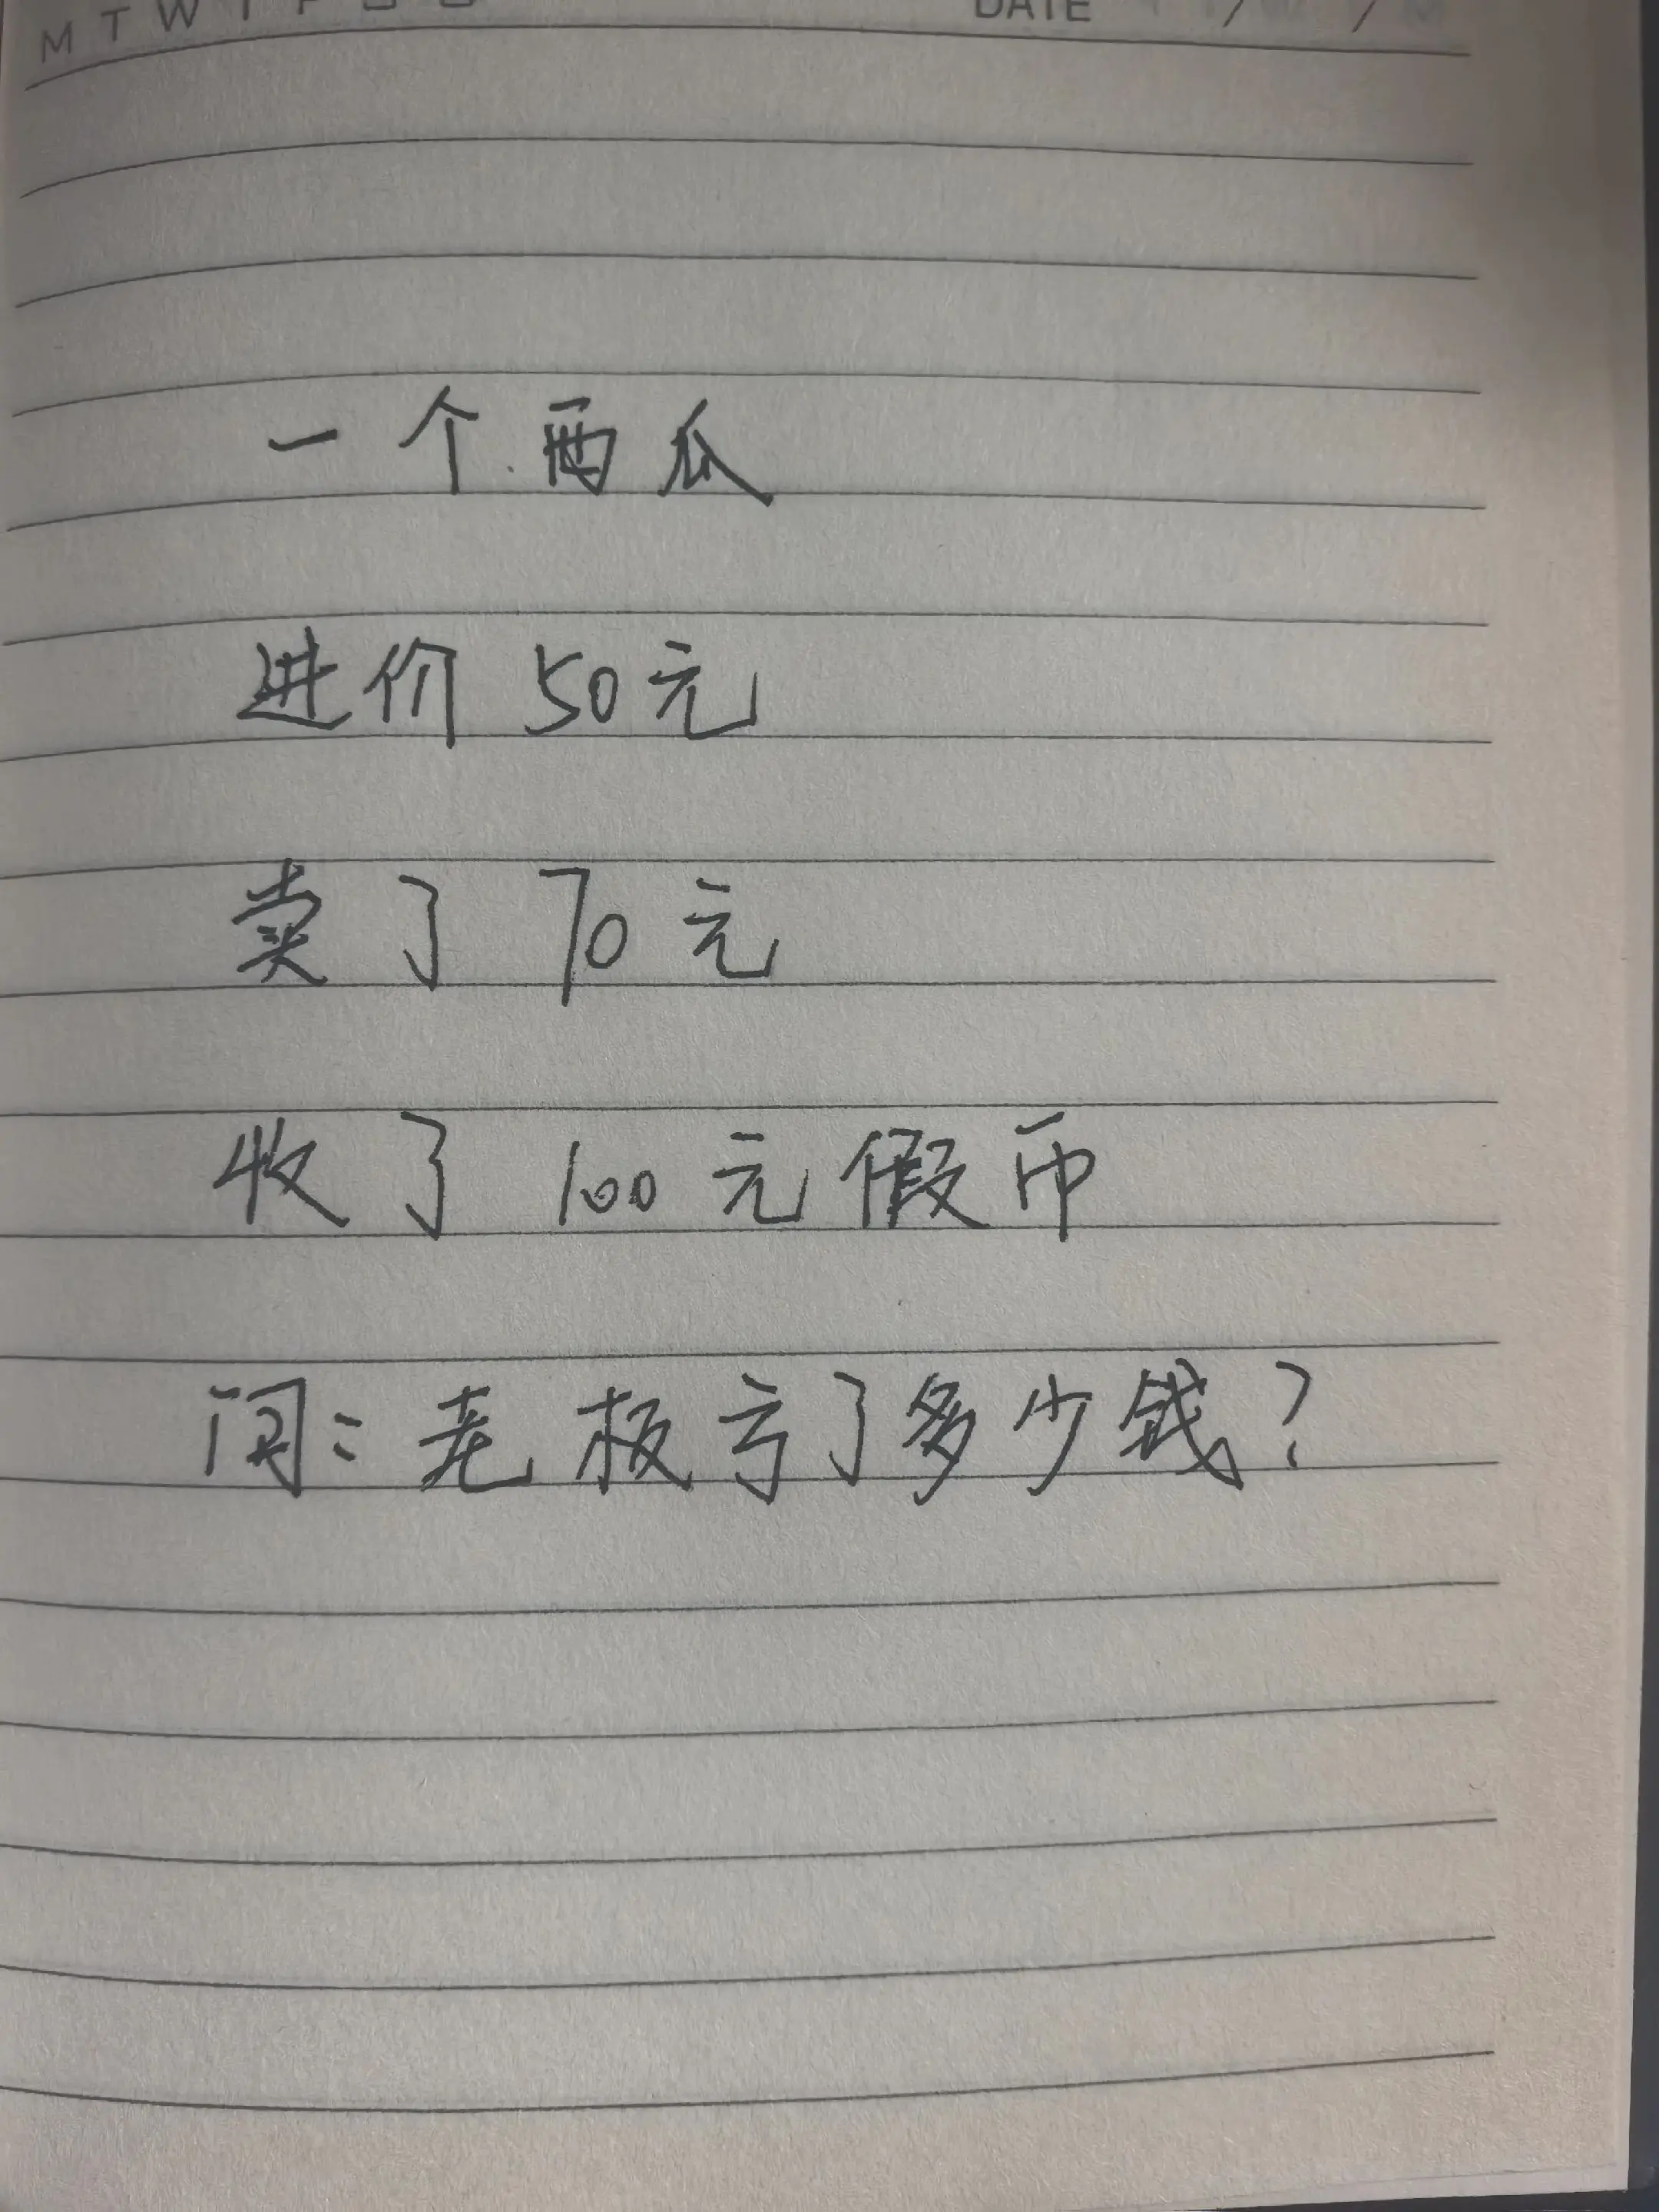 M T W T F S S DATE / /
一个西瓜
进价50元
卖了70元
收了100元假币
问：老板亏了多少钱？